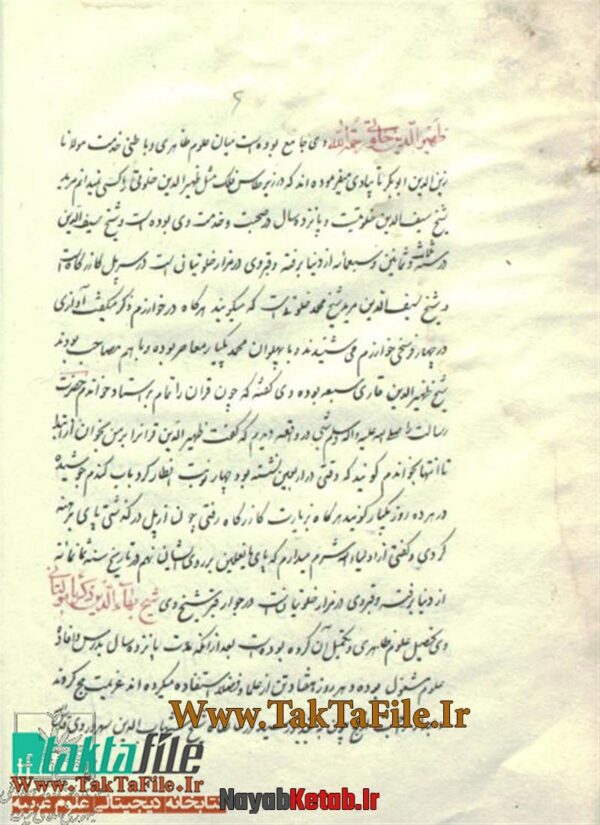 ظهیر الدین خلوتی رحمه الله وی جامع بوده است میان علوم ظاهری و باطنی خدمت مولانا
زین الدین ابوبکر تایبادی میفرموده اند که در زیر طاس فلک مثل ظهیر الدین خلوتی را کسی نمیدانم مرید
شیخ سیف الدین خلوتیست و پانزده سال در صحبت و خدمت وی بوده است و شیخ سیف الدین
در سنه ثلث و ثمانین و سبعمائه از دنیا برفته و قبر وی در مزار خلوتیانی است در سر پل کازرگاه است
و شیخ سیف الدین مرید شیخ محمد خلوتیست که میگویند هرگاه در خوارزم ذکر میگفت آواز وی
در چهار فرسخی خوارزم می شنیدند و با پهلوان محمد پکیار معاصر بوده و با هم مصاحب بودند
شیخ ظهیر الدین قاری سبعه بوده وی گفته که چون قران را تمام بر استاد خواندم حضرت
رسالت را صلی الله علیه و آله وسلم شبی در واقعه دیدم که گفت ظهیر الدین قرانرا بر من بخوان از ابتدا
تا انتها بخواندم گویند که وقتی در اربعین نشسته بود چهار نوبت افطار کرد باب گندم جوشیده
در هر ده روز یکبار گویند هرگاه بزیارت کازرگاه رفتی چون از پل در گذشتی پای برهنه
کردی و گفتی از اولیاء الله شرم میدارم که پای با نعلین بر روی ایشان نهم در تاریخ سنه ثمانمائه
از دنیا برفته و قبر وی در مزار خلوتیانست در جوار قبر شیخ وی شیخ بهاء الدین زکریا مولتانی
وی تحصیل علوم ظاهری و تکمیل آن کرده بوده است بعد از آنکه مدت پانزده سال بدرس و افاده
علوم مشغول بوده و هر روز هفتاد تن از علما و فضلا استفاده میکرده اند عزیمت حج کردند
شیخ شهاب الدین سهروردی
www.TakTaFile.Ir
taktafile
www.TakTaFile.Ir
کتابخانه دیجیتالی علوم غریبه
NayabKetab.Ir